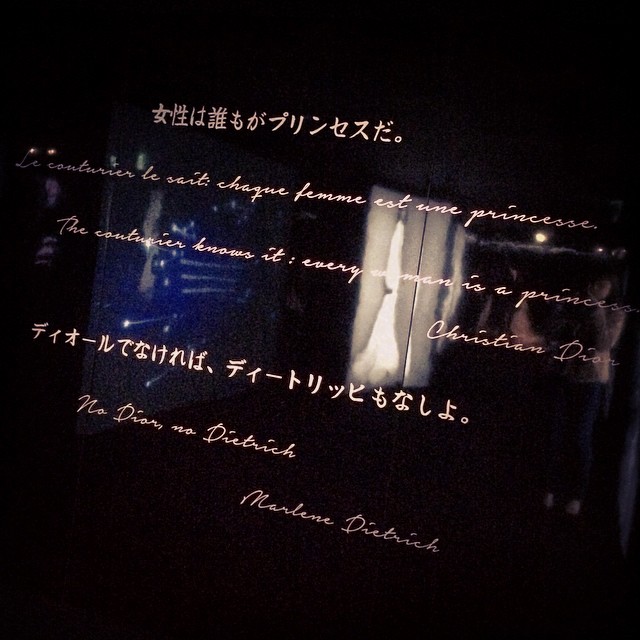 女性は誰もがプリンセスだ。
Le couturier le sait: chaque femme est une princesse.
The couturier knows it : every woman is a princess.
Christian Dior
ディオールでなければ、ディートリッヒもなしよ。
No Dior, no Dietrich
Marlene Dietrich